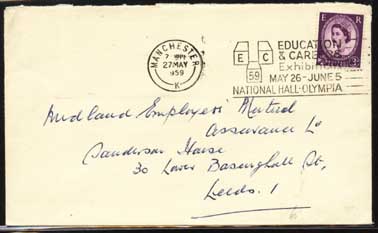 MANCHESTER
27 MAY
1959
K
E C
59
EDUCATION
& CAREERS
Exhibition
MAY 26-JUNE 5
NATIONAL HALL·OLYMPIA
E R
Midland Employers' Mutual
Assurance Lᵈ
Sanderson House
30 Lower Basinghall St,
Leeds. 1